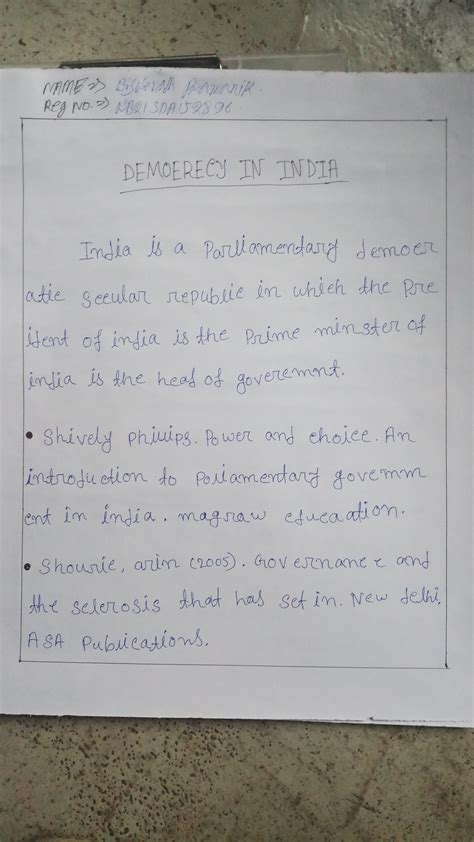 NAME => Biswanath Pramanik.
Reg NO. => NB21SDA152896
DEMOERECY IN INDIA
India is a Parliamentary democr
atic secular republic in which the Pre
ident of india is the Prime minster of
india is the head of goverement.
• Shively Phillips. Power and choice. An
introduction to Poliamentary governmm
ent in india. magraw educaation.
• Shourie, arin (2005). Governance and
the selerosis that has set in. New delhi,
ASA Publications.